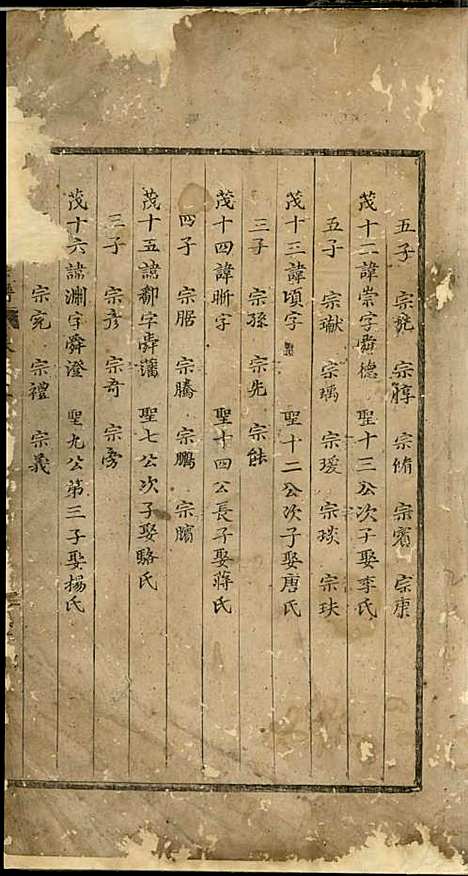 五子 宗㲋 宗脝 宗脩 宗賓 宗康
茂十二諱崇字舜德 聖十三公次子娶李氏
五子 宗瓛 宗瑀 宗瑗 宗琰 宗玞
茂十三諱頃字 聖十二公次子娶唐氏
三子 宗孫 宗先 宗能
茂十四諱昕字 聖十四公長子娶蔣氏
四子 宗腒 宗騰 宗鵬 宗臏
茂十五諱鄱字舜藩 聖七公次子娶駱氏
三子 宗彥 宗奇 宗旁
茂十六諱渊字舜澄 聖九公第三子娶楊氏
宗完 宗禮 宗義